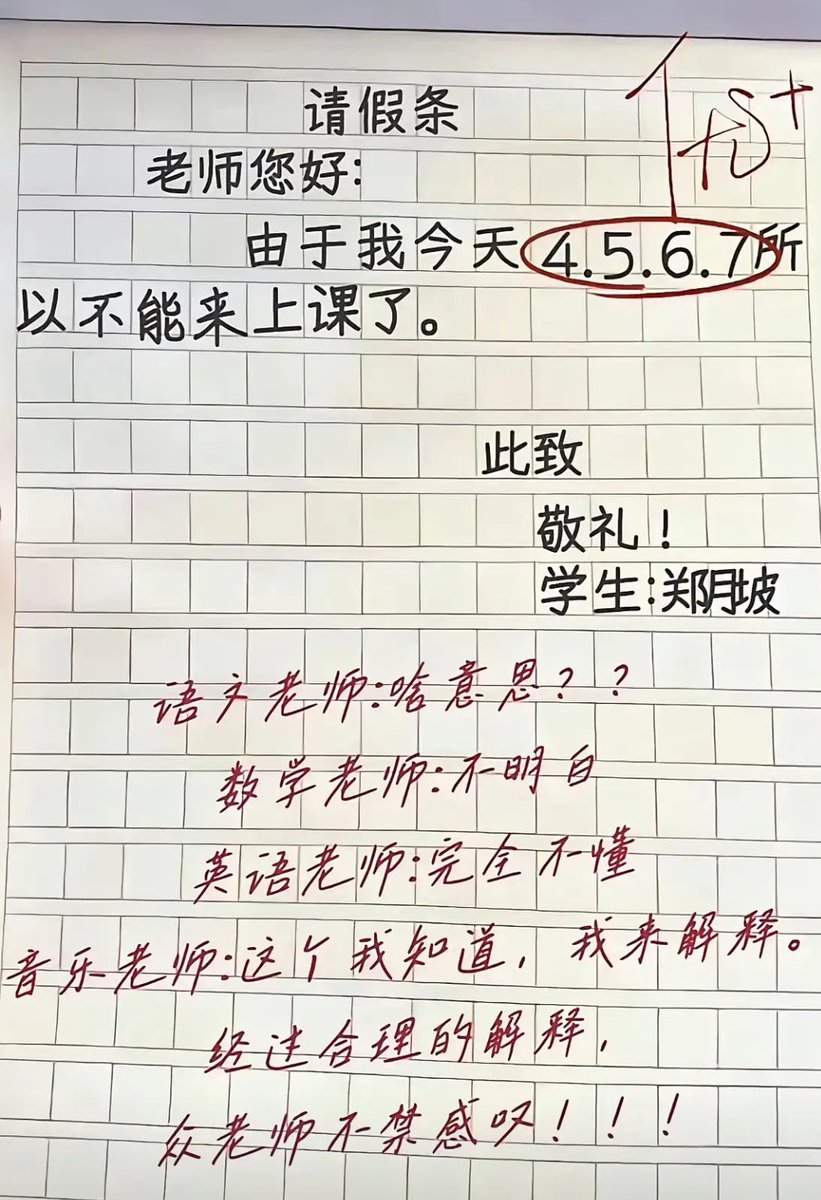 请假条
优+
老师您好:
由于我今天4.5.6.7所
以不能来上课了。
此致
敬礼!
学生:郑月坡
语文老师:啥意思??
数学老师:不明白
英语老师:完全不懂
音乐老师:这个我知道,我来解释。
经过合理的解释,
众老师不禁感叹!!!